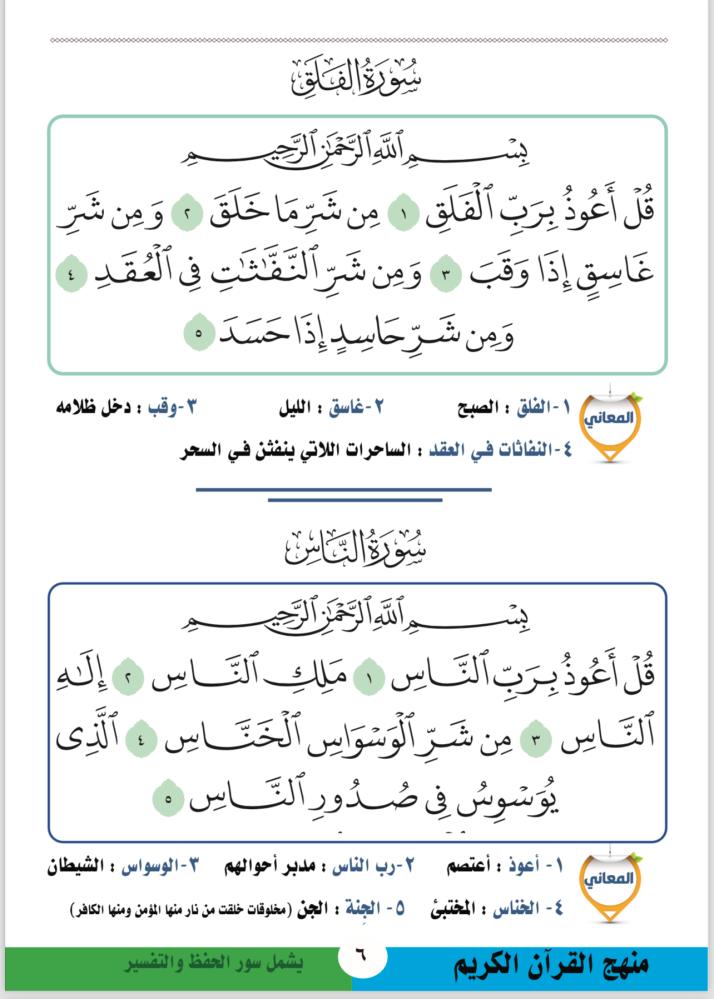 سُورَةُ الفَلَقِ
بِسْمِ ٱللَّهِ ٱلرَّحْمَٰنِ ٱلرَّحِيمِ
قُلْ أَعُوذُ بِرَبِّ ٱلْفَلَقِ ١ مِن شَرِّ مَا خَلَقَ ٢ وَمِن شَرِّ
غَاسِقٍ إِذَا وَقَبَ ٣ وَمِن شَرِّ ٱلنَّفَّٰثَٰتِ فِى ٱلْعُقَدِ ٤
وَمِن شَرِّ حَاسِدٍ إِذَا حَسَدَ ٥
المعاني
١- الفلق : الصبح ٢-غاسق : الليل ٣-وقب : دخل ظلامه
٤-النفاثات في العقد : الساحرات اللاتي ينفثن في السحر
سُورَةُ النَّاسِ
بِسْمِ ٱللَّهِ ٱلرَّحْمَٰنِ ٱلرَّحِيمِ
قُلْ أَعُوذُ بِرَبِّ ٱلنَّاسِ ١ مَلِكِ ٱلنَّاسِ ٢ إِلَٰهِ
ٱلنَّاسِ ٣ مِن شَرِّ ٱلْوَسْوَاسِ ٱلْخَنَّاسِ ٤ ٱلَّذِى
يُوَسْوِسُ فِى صُدُورِ ٱلنَّاسِ ٥
المعاني
١- أعوذ : أعتصم ٢-رب الناس : مدبر أحوالهم ٣-الوسواس : الشيطان
٤- الخناس : المختبئ ٥- الجِنة : الجن (مخلوقات خلقت من نار منها المؤمن ومنها الكافر)
منهج القرآن الكريم ٦ يشمل سور الحفظ والتفسير